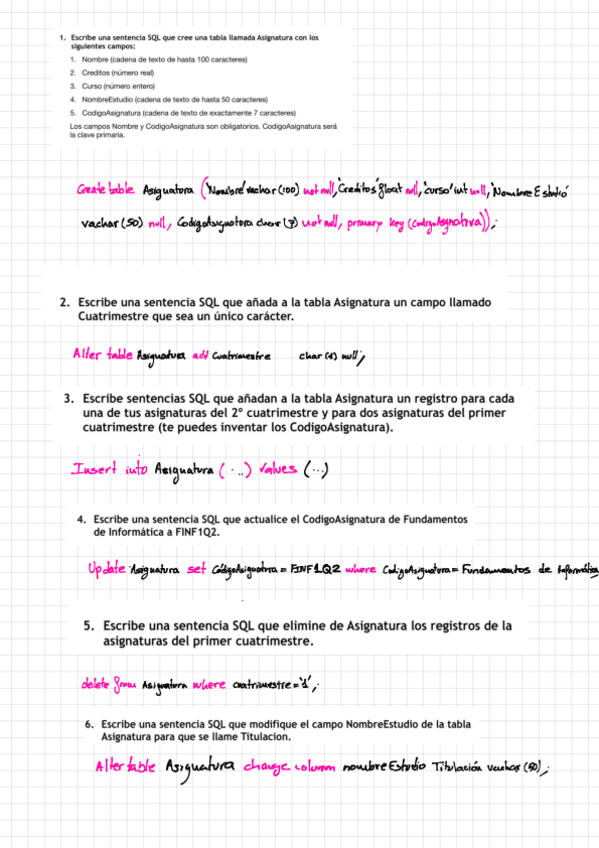 1. Escribe una sentencia SQL que cree una tabla llamada Asignatura con los
siguientes campos:
1. Nombre (cadena de texto de hasta 100 caracteres)
2. Creditos (número real)
3. Curso (número entero)
4. NombreEstudio (cadena de texto de hasta 50 caracteres)
5. CodigoAsignatura (cadena de texto de exactamente 7 caracteres)
Los campos Nombre y CodigoAsignatura son obligatorios. CodigoAsignatura será
la clave primaria.
Create table Asignatura ('Nombre' vachar (100) not null, 'Creditos' float null, 'curso' int null, 'Nombre Estudio'
vachar (50) null, CodigoAsignatura char (7) not null, primary key (CodigoAsignatura));
2. Escribe una sentencia SQL que añada a la tabla Asignatura un campo llamado
Cuatrimestre que sea un único carácter.
Alter table Asignatura add Cuatrimestre char (1) null;
3. Escribe sentencias SQL que añadan a la tabla Asignatura un registro para cada
una de tus asignaturas del 2º cuatrimestre y para dos asignaturas del primer
cuatrimestre (te puedes inventar los CodigoAsignatura).
Insert into Asignatura (...) values (...)
4. Escribe una sentencia SQL que actualice el CodigoAsignatura de Fundamentos
de Informática a FINF1Q2.
Update Asignatura set CódigoAsignatura = FINF1Q2 where CodigoAsignatura = Fundamentos de Informática
5. Escribe una sentencia SQL que elimine de Asignatura los registros de la
asignaturas del primer cuatrimestre.
delete from Asignatura where cuatrimestre = '1';
6. Escribe una sentencia SQL que modifique el campo NombreEstudio de la tabla
Asignatura para que se llame Titulacion.
Alter table Asignatura change column nombreEstudio Titulación vachar (50);